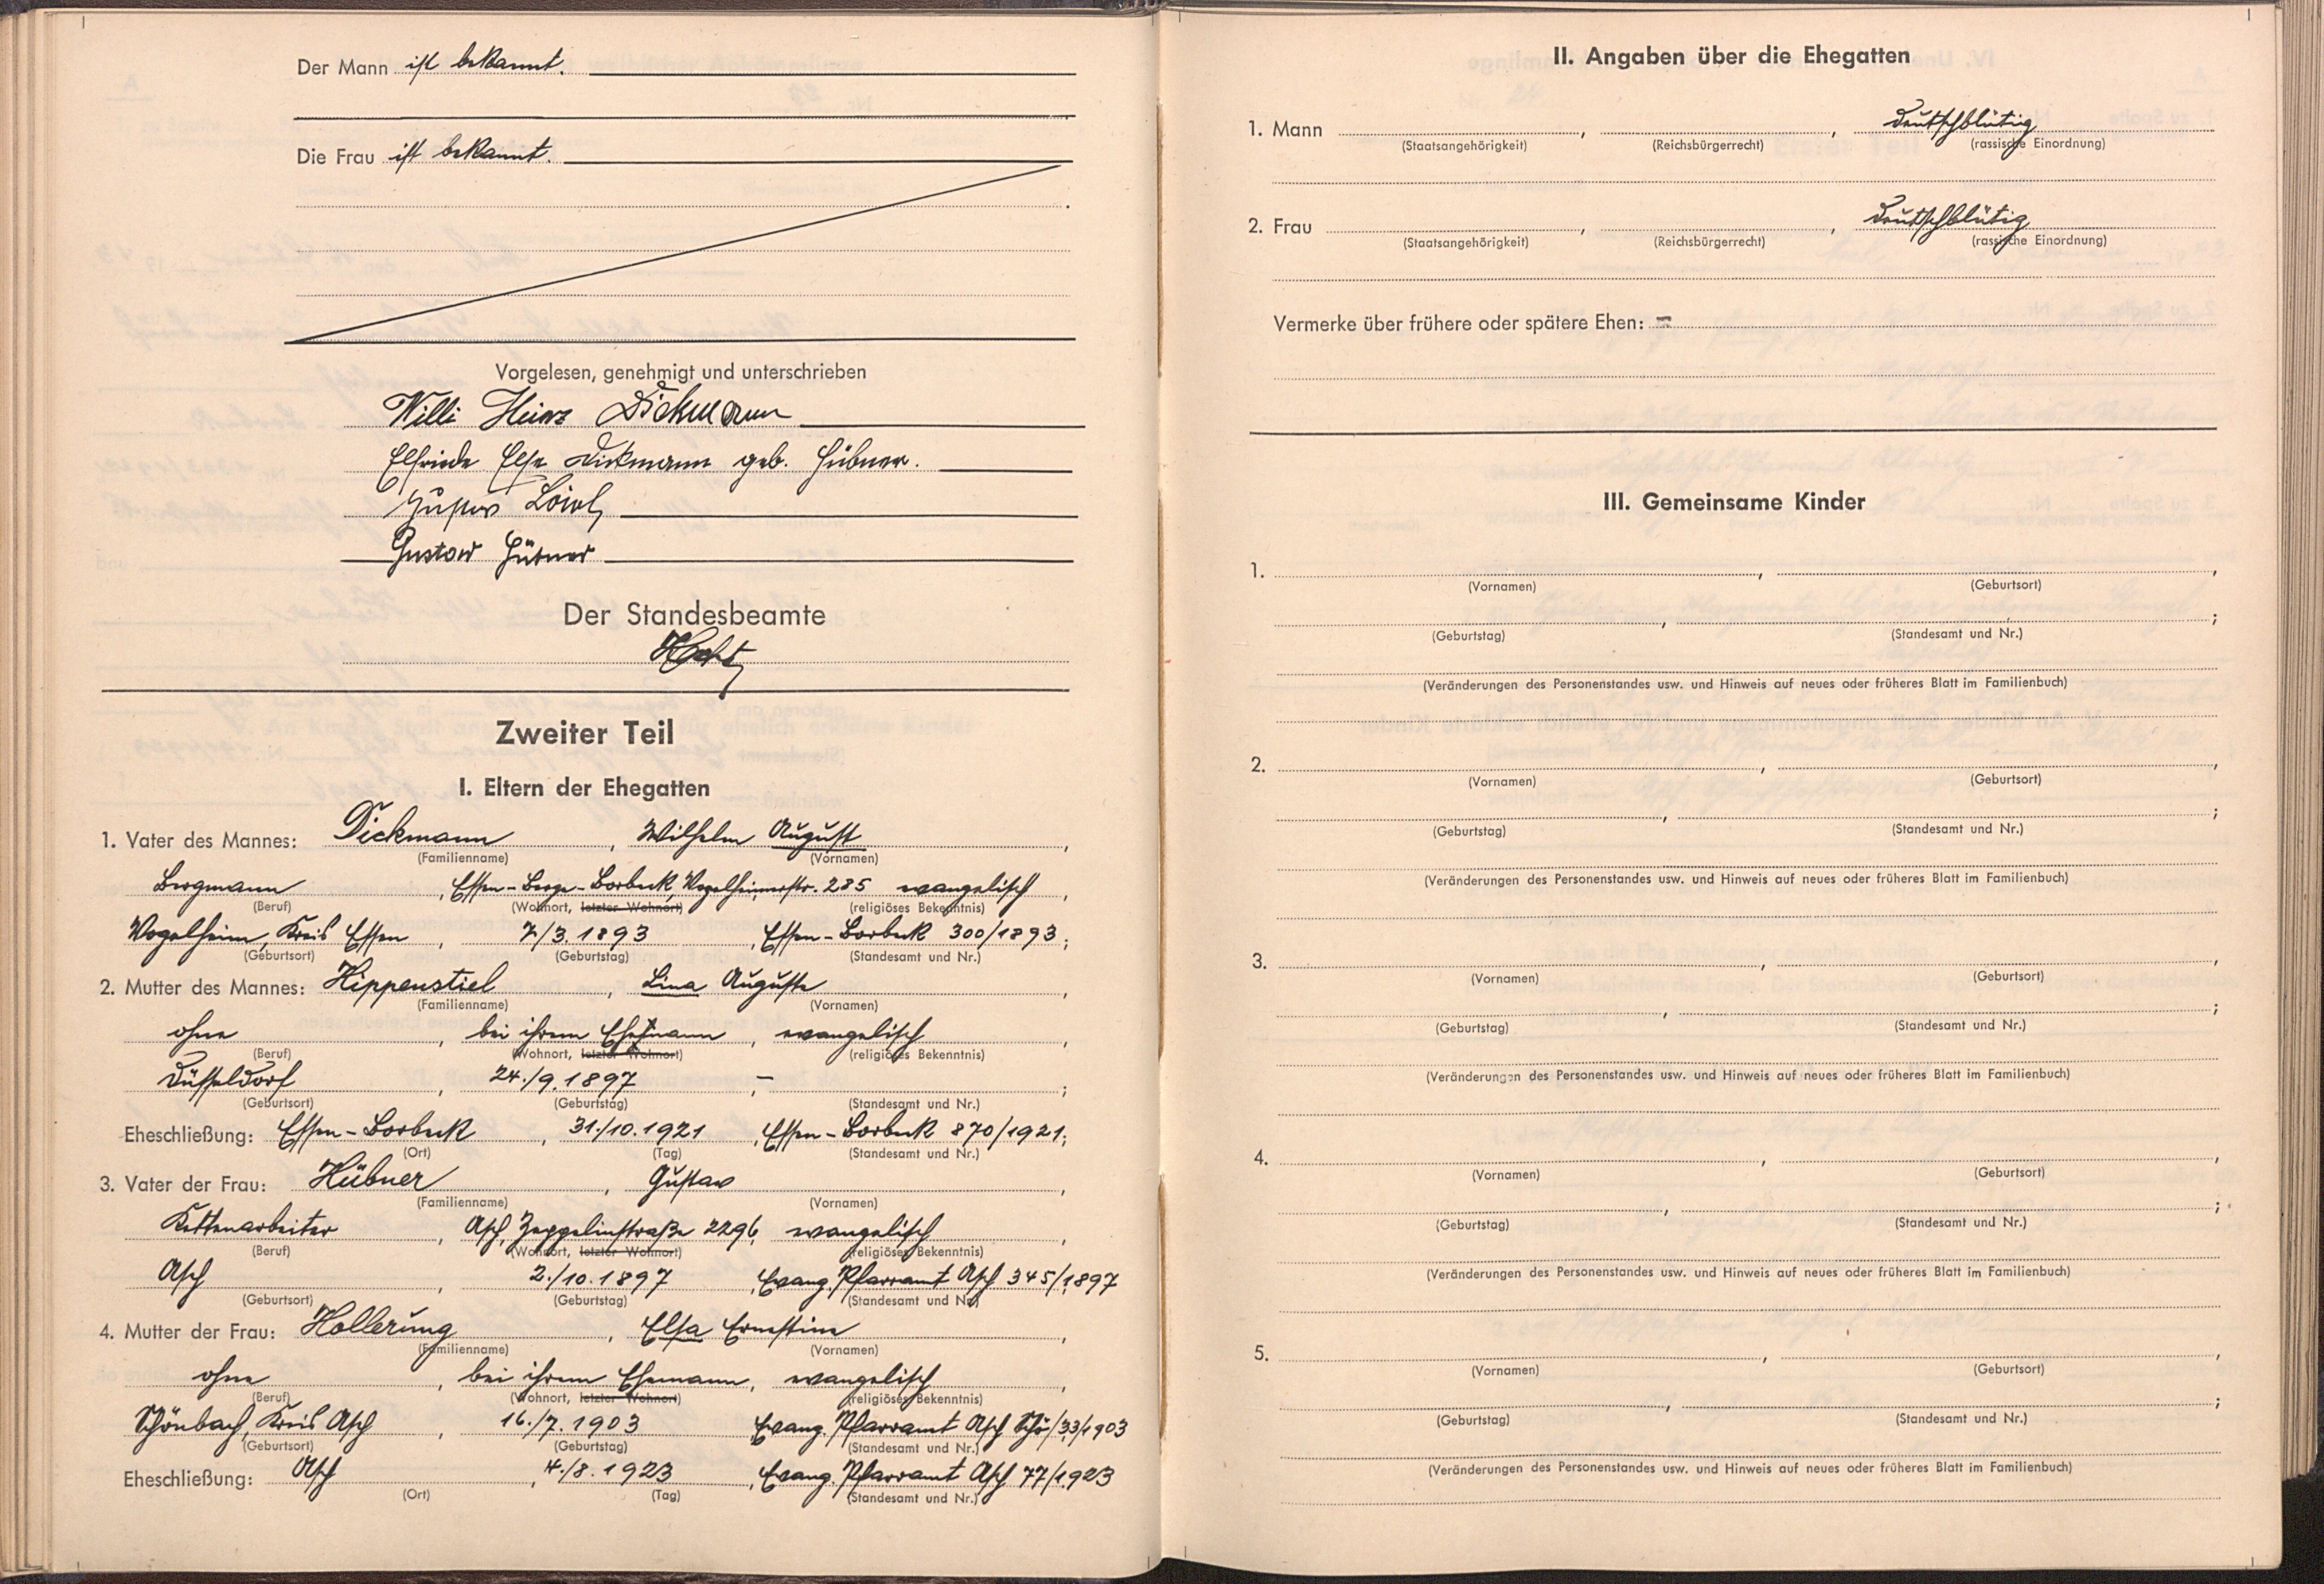 Der Mann ist bekannt.
Die Frau ist bekannt.
Vorgelesen, genehmigt und unterschrieben
Willi Heinz Dickmann
Elfriede Else Dickmann geb. Hübner.
Gustav
Gustav Hübner
Der Standesbeamte
Zweiter Teil
I. Eltern der Ehegatten
1. Vater des Mannes: Dickmann, Wilhelm August,
(Familienname) (Vornamen)
Bergmann, Essen-Berge-Borbeck, Vogelheimerstr. 285 evangelisch,
(Beruf) (Wohnort, letzter Wohnort) (religiöses Bekenntnis)
Vogelheim, Kreis Essen, 7/3. 1893, Essen-Borbeck 300/1893;
(Geburtsort) (Geburtstag) (Standesamt und Nr.)
2. Mutter des Mannes: Hippenstiel, Lina Auguste,
(Familienname) (Vornamen)
ohne, bei ihrem Ehemann, evangelisch,
(Beruf) (Wohnort, letzter Wohnort) (religiöses Bekenntnis)
Düsseldorf, 24./9. 1897, –;
(Geburtsort) (Geburtstag) (Standesamt und Nr.)
Eheschließung: Essen-Borbeck, 31./10. 1921, Essen-Borbeck 870/1921;
(Ort) (Tag) (Standesamt und Nr.)
3. Vater der Frau: Hübner, Gustav,
(Familienname) (Vornamen)
Kettenarbeiter, Asch, Zeppelinstraße 2296, evangelisch,
(Beruf) (Wohnort, letzter Wohnort) (religiöses Bekenntnis)
Asch, 2./10. 1897, Evang. Pfarramt Asch 345/1897
(Geburtsort) (Geburtstag) (Standesamt und Nr.)
4. Mutter der Frau: Hollerung, Elsa Ernestine,
(Familienname) (Vornamen)
ohne, bei ihrem Ehemann, evangelisch,
(Beruf) (Wohnort, letzter Wohnort) (religiöses Bekenntnis)
Schönbach, Kreis Asch, 16./7. 1903, Evang. Pfarramt Asch Schö/33/1903
(Geburtsort) (Geburtstag) (Standesamt und Nr.)
Eheschließung: Asch, 4./8. 1923, Evang. Pfarramt Asch 77/1923
(Ort) (Tag) (Standesamt und Nr.)
II. Angaben über die Ehegatten
1. Mann , , deutschblütig
(Staatsangehörigkeit) (Reichsbürgerrecht) (rassische Einordnung)
2. Frau , , deutschblütig
(Staatsangehörigkeit) (Reichsbürgerrecht) (rassische Einordnung)
Vermerke über frühere oder spätere Ehen: –
III. Gemeinsame Kinder
1. , ,
(Vornamen) (Geburtsort)
, ;
(Geburtstag) (Standesamt und Nr.)
(Veränderungen des Personenstandes usw. und Hinweis auf neues oder früheres Blatt im Familienbuch)
2. , ,
(Vornamen) (Geburtsort)
, ;
(Geburtstag) (Standesamt und Nr.)
(Veränderungen des Personenstandes usw. und Hinweis auf neues oder früheres Blatt im Familienbuch)
3. , ,
(Vornamen) (Geburtsort)
, ;
(Geburtstag) (Standesamt und Nr.)
(Veränderungen des Personenstandes usw. und Hinweis auf neues oder früheres Blatt im Familienbuch)
4. , ,
(Vornamen) (Geburtsort)
, ;
(Geburtstag) (Standesamt und Nr.)
(Veränderungen des Personenstandes usw. und Hinweis auf neues oder früheres Blatt im Familienbuch)
5. , ,
(Vornamen) (Geburtsort)
, ;
(Geburtstag) (Standesamt und Nr.)
(Veränderungen des Personenstandes usw. und Hinweis auf neues oder früheres Blatt im Familienbuch)